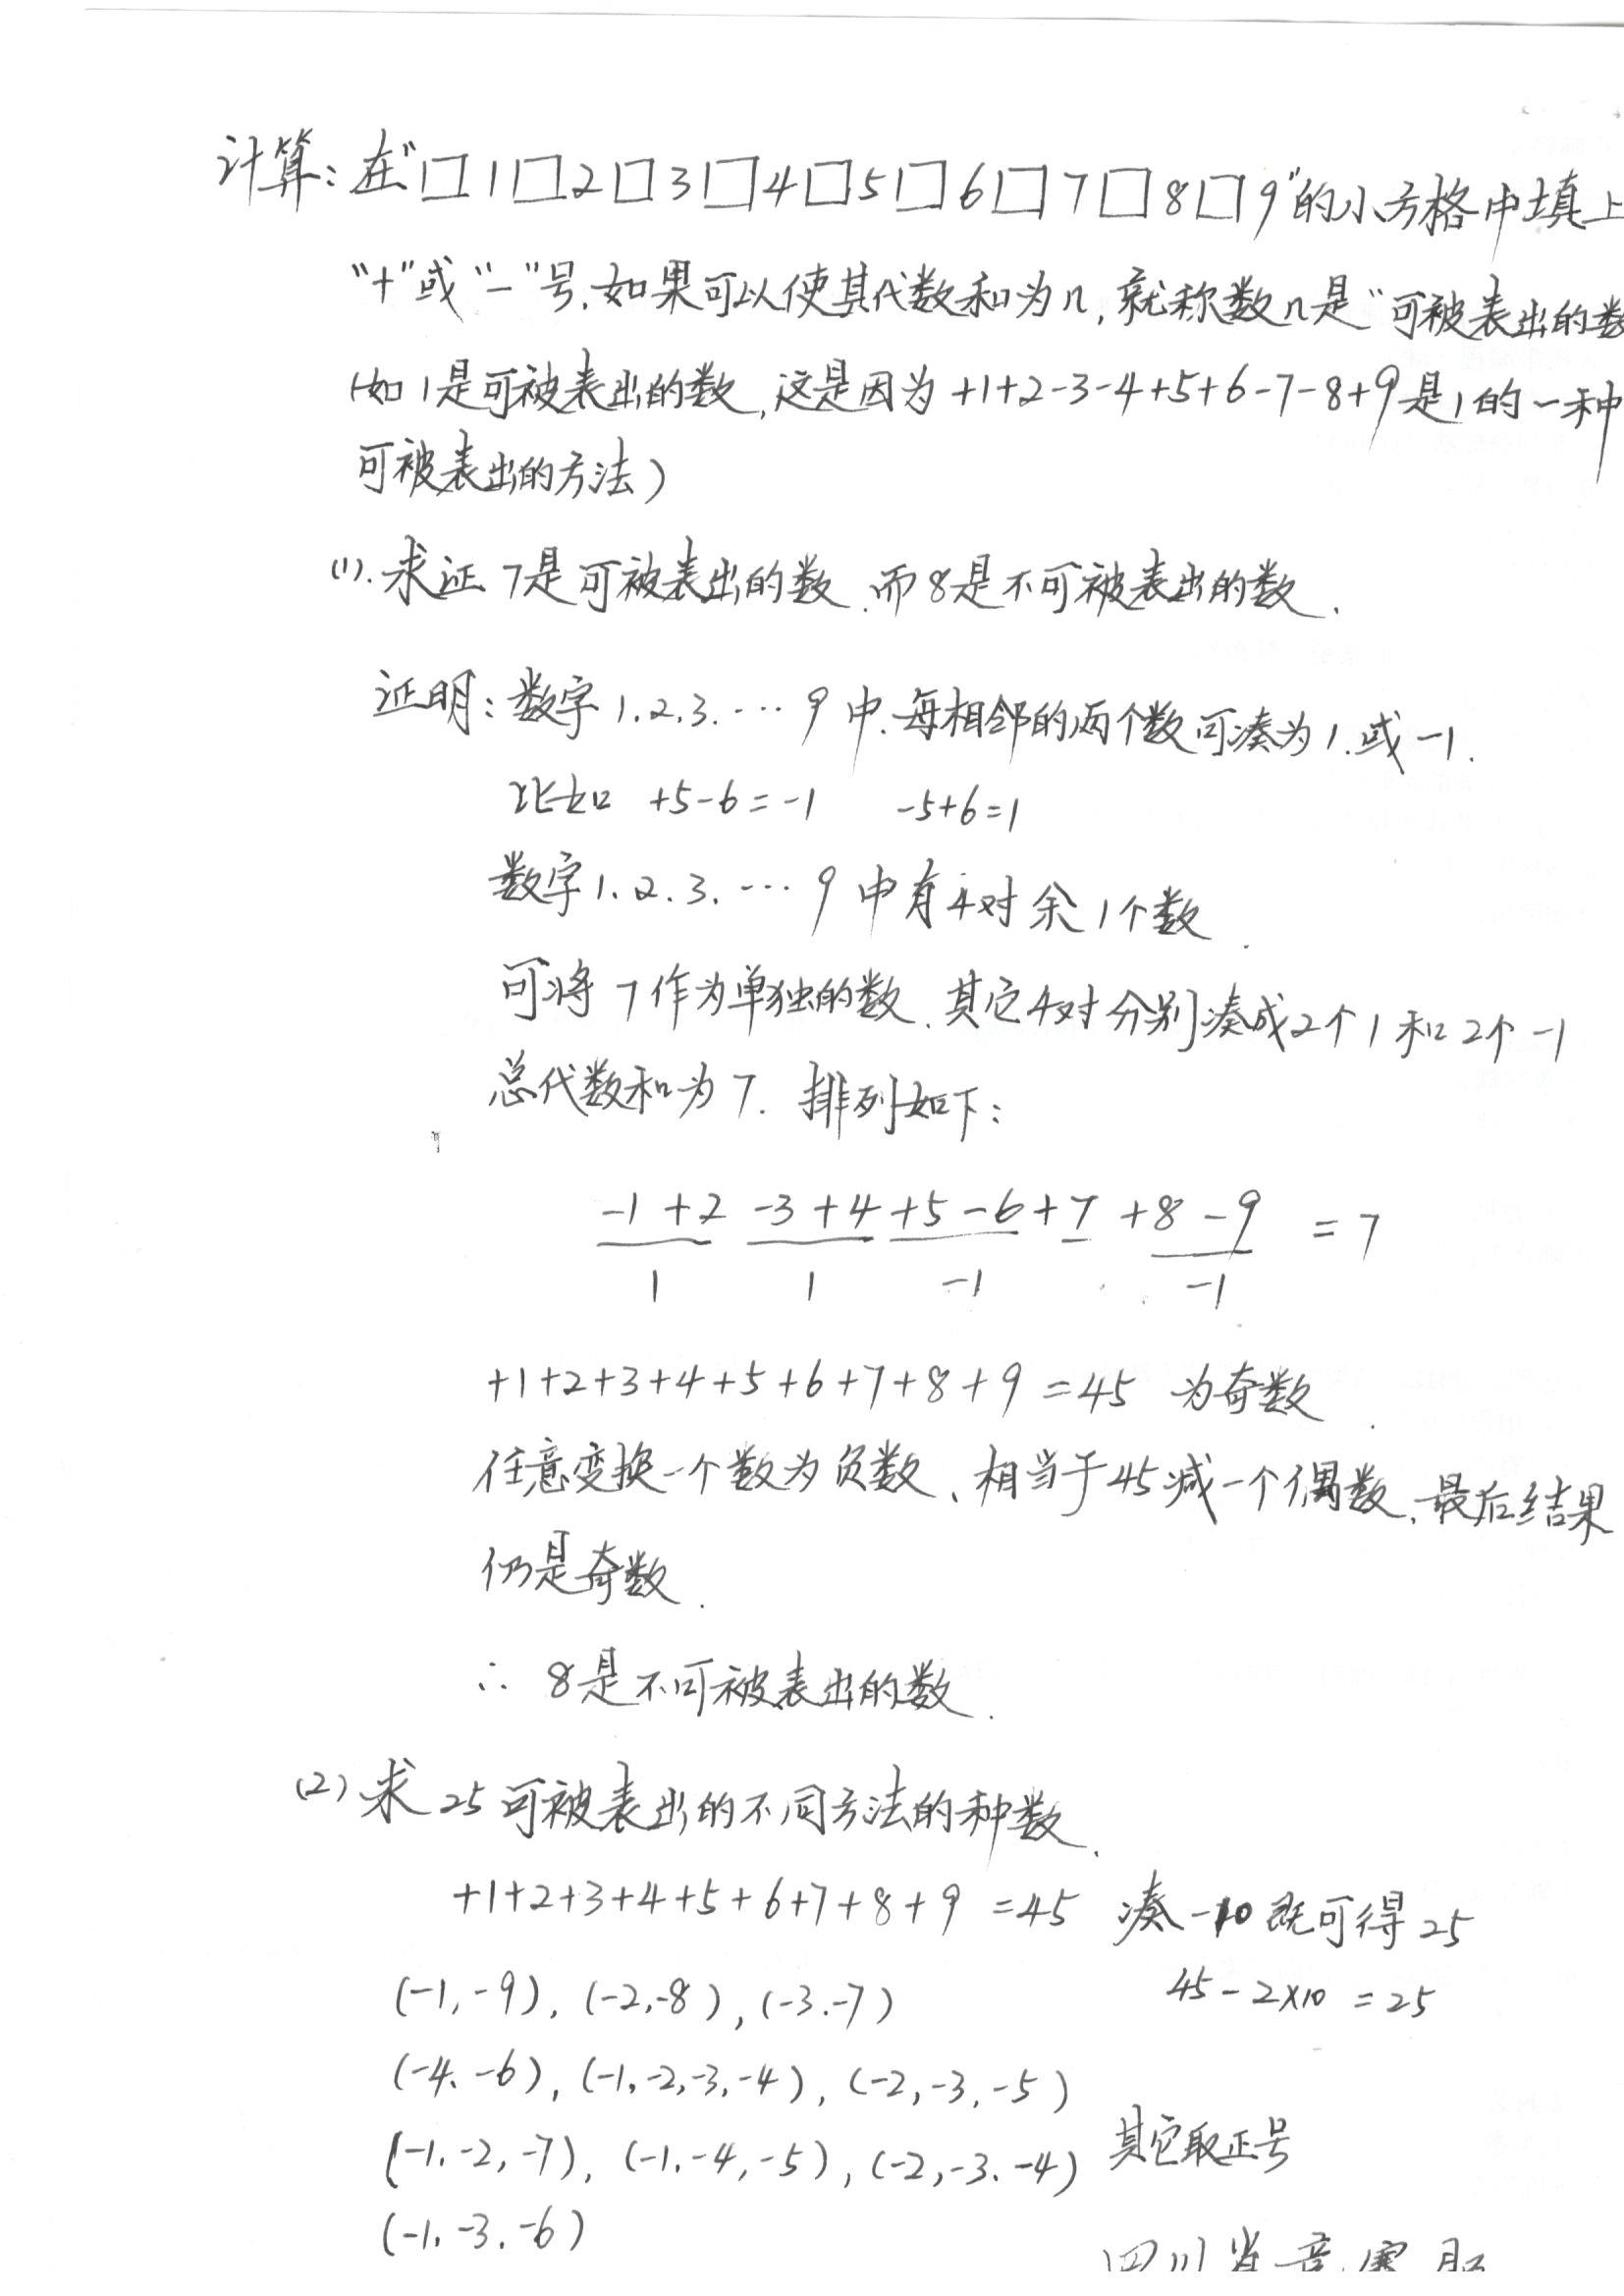 计算：在"□1□2□3□4□5□6□7□8□9"的小方格中填上
"+"或"－"号,如果可以使其代数和为n,就称数n是"可被表出的数
(如1是可被表出的数,这是因为+1+2-3-4+5+6-7-8+9是1的一种
可被表出的方法)
(1).求证7是可被表出的数.而8是不可被表出的数.
证明：数字1.2.3.…9中.每相邻的两个数可凑为1.或-1.
比如 +5-6=-1 -5+6=1
数字1.2.3.…9中有4对余1个数.
可将7作为单独的数.其它4对分别凑成2个1和2个-1
总代数和为7. 排列如下：
-1+2 -3+4 +5-6 +7 +8-9 =7
1 1 -1 -1
+1+2+3+4+5+6+7+8+9=45 为奇数.
任意变换一个数为负数、相当于45减一个偶数.最后结果
仍是奇数.
∴ 8是不可被表出的数.
(2)求25可被表出的不同方法的种数.
+1+2+3+4+5+6+7+8+9=45 凑-10既可得25
(-1,-9),(-2,-8),(-3.-7) 45-2×10=25
(-4、-6),(-1,-2,-3,-4),(-2,-3,-5)
(-1.-2,-7),(-1.-4,-5),(-2,-3.-4) 其它取正号
(-1.-3.-6)
四川省